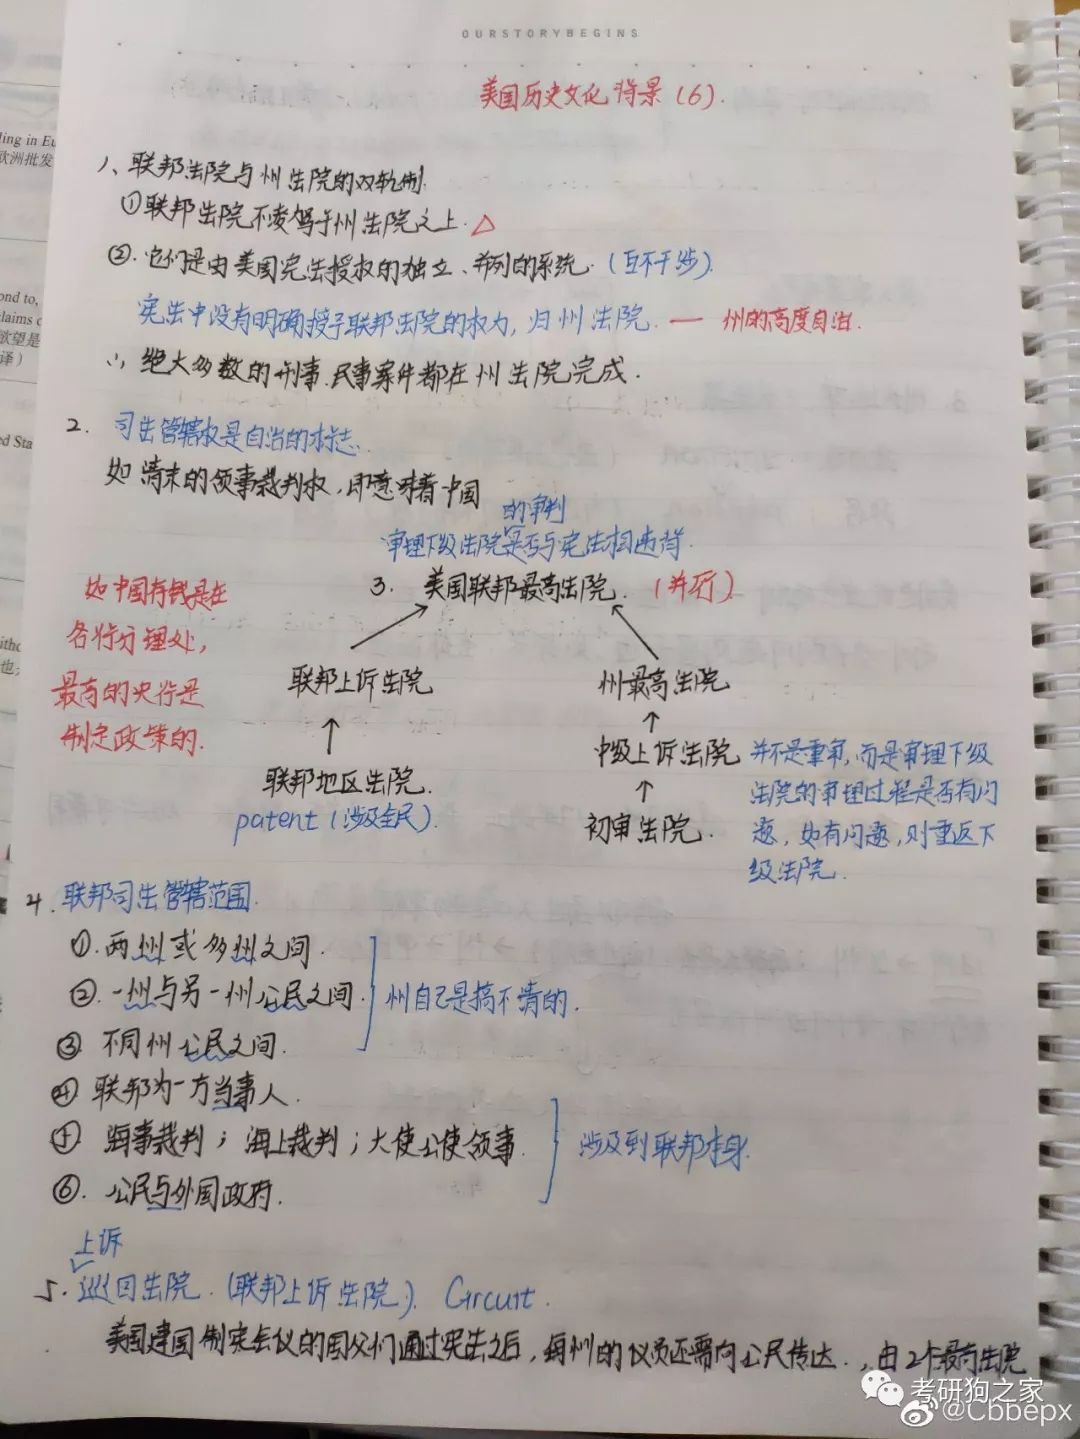 OURSTORYBEGINS
美国历史文化背景(6).
ling in Eu
欧洲批发
ond to,
laims c
欲望是
译）
ed Sta
1、联邦法院与州法院的双轨制.
①联邦法院不凌驾于州法院之上.△
②.它们是由美国宪法授权的独立、并列的系统.(互不干涉).
宪法中没有明确授予联邦法院的权力,归州法院.— 州的高度自治.
∴绝大多数的刑事.民事案件都在州法院完成.
2. 司法管辖权是自治的标志.
如清末的领事裁判权,即意味着中国
的审判
审理下级法院是否与宪法相违背.
3. 美国联邦最高法院.(并行)
如中国有钱是在
各行分理处,
最高的央行是
制定政策的.
联邦上诉法院
州最高法院
↑
↑
联邦地区法院.
patent(涉及全民).
中级上诉法院
↑
初审法院.
并不是重审,而是审理下级
法院的审理过程是否有问
题,如有问题,则重返下
级法院.
4.联邦司法管辖范围.
①.两州或多州之间.
②.一州与另一州公民之间. 州自己是搞不清的.
③ 不同州公民之间.
④ 联邦为一方当事人.
⑤. 海事裁判;海上裁判;大使公使领事. 涉及到联邦本身.
⑥. 公民与外国政府.
上诉
5.巡回法院.(联邦上诉法院). Circuit.
美国建国制宪会议的国父们通过宪法之后,每州的议员还需向公民传达.,由2个最高法院
考研狗之家
@Cbbepx